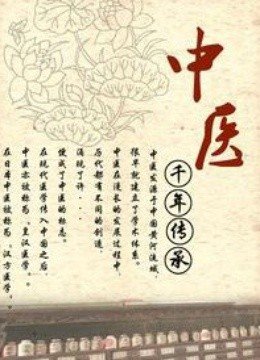 中医
千年传承
中医发源于中国黄河流域，
很早就建立了学术体系。
中医在漫长的发展过程中，
历代都有不同的创造，
涌现了许...
使成了中医的标志。
在现代医学传入中国之后，
中医亦被称为，皇汉医学。
在日本中医被称为，汉方医学。。